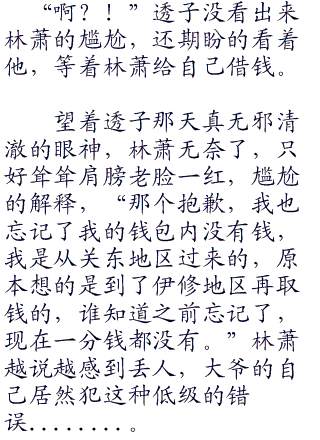 “啊？！”透子没看出来
林萧的尴尬，还期盼的看着
他，等着林萧给自己借钱。
望着透子那天真无邪清
澈的眼神，林萧无奈了，只
好耸耸肩膀老脸一红，尴尬
的解释，“那个抱歉，我也
忘记了我的钱包内没有钱，
我是从关东地区过来的，原
本想的是到了伊修地区再取
钱的，谁知道之前忘记了，
现在一分钱都没有。”林萧
越说越感到丢人，大爷的自
己居然犯这种低级的错
误........。